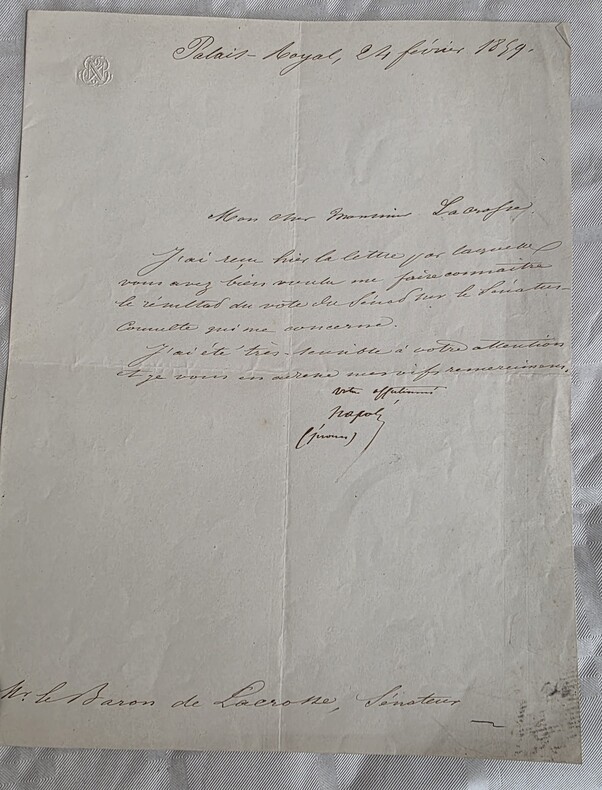 Palais-Royal, 24 février 1859.
Mon cher Monsieur Lacrosse,
J'ai reçu hier la lettre par laquelle
vous avez bien voulu me faire connaître
le résultat du vote du Sénat sur le Sénatus-
Consulte qui me concerne.
J'ai été très-sensible à votre attention
et je vous en adresse mes vifs remerciemens.
Votre affectionné
Napoléon
(Jérôme)
Mr. le Baron de Lacrosse, Sénateur